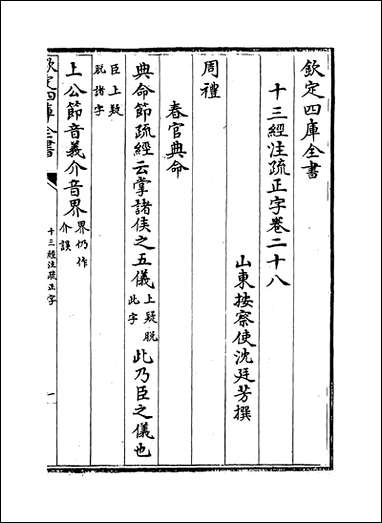 欽定四庫全書
十三經注疏正字卷二十八
山東按察使沈廷芳撰
周禮
春官典命
典命節疏經云掌諸侯之五儀上疑脫此字此乃臣之儀也
臣上疑脫諸字
上公節音義介音界界仍作介誤
欽定四庫全書
十三經注疏正字
一